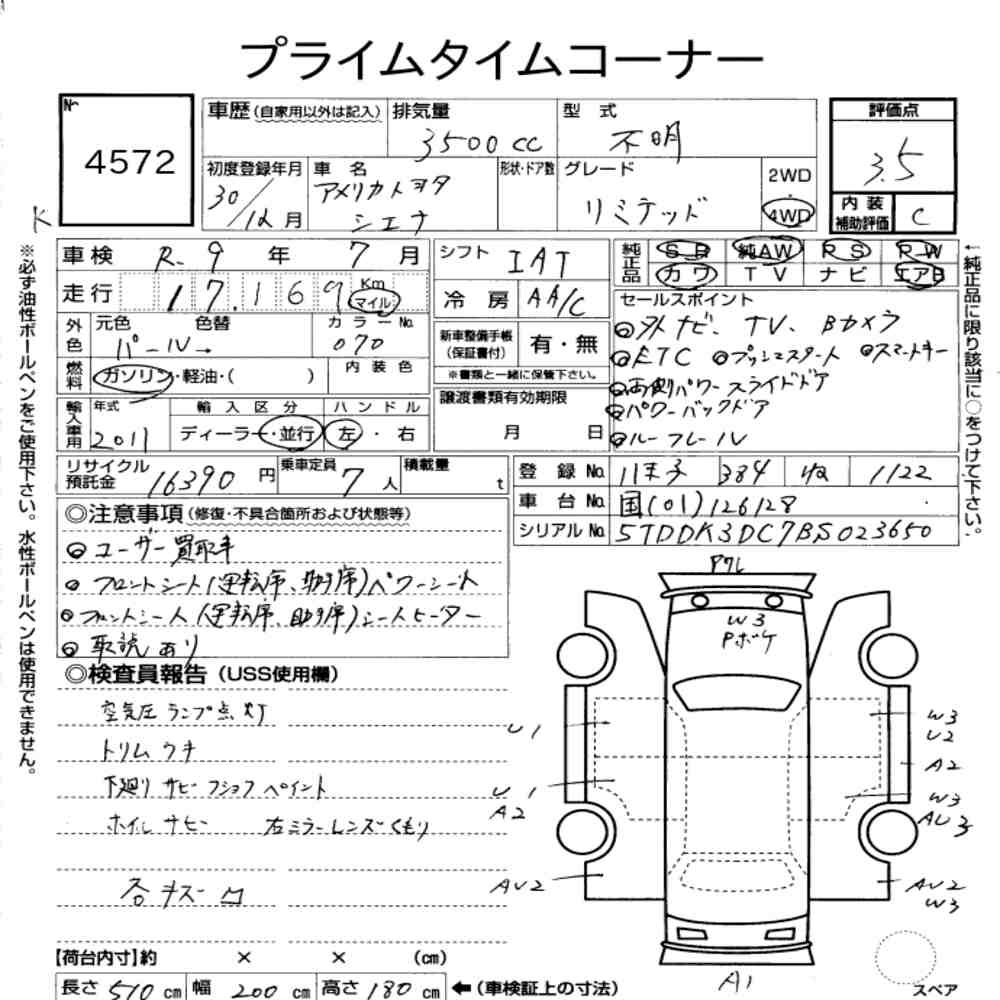 プライムタイムコーナー
No.
4572
K
車歴(自家用以外は記入) 排気量 3500cc 型式 不明
評価点 3.5
初度登録年月 30/12月 車名 アメリカトヨタ シエナ 形状・ドア数 グレード リミテッド 2WD・4WD
内装補助評価 C
※必ず油性ボールペンをご使用下さい。水性ボールペンは使用できません。
車検 R-9年 7月 シフト IAT 純正品 SR 純AW RS PW
カワ TV ナビ エアB
走行 17.169 Km マイル 冷房 AA/C
セールスポイント
外色 元色 色替 カラーNo.
パール→ 070
新車整備手帳(保証書付) 有・無
※書類と一緒に保管下さい。
◎外ナビ、TV、Bカメラ
◎ETC ◎プッシュスタート ◎スマートキー
◎両側パワースライドドア
◎パワーバックドア
◎ルーフレール
燃料 ガソリン・軽油・( ) 内装色
譲渡書類有効期限
月 日
輸入車用 年式 2011 輸入区分 ディーラー・並行 ハンドル 左・右
←純正品に限り該当に○をつけて下さい。
リサイクル預託金 16390円 乗車定員 7人 積載量 t
登録No. 384 1122
車台No. 国(01)126128
シリアルNo. 5TDDK3DC7BS023650
◎注意事項(修復・不具合箇所および状態等)
◎ユーザー買取車
◎フロントシート(運転席、助手席)パワーシート
◎フロントシート(運転席、助手席)シートヒーター
◎取説あり
◎検査員報告(USS使用欄)
空気圧ランプ点灯
トリムウキ
下廻りサビーフショクペイント
ホイルサビー 右ミラーレンズくもり
各キズ凹
Pワレ
W3
Pボケ
U1
U1
A2
AU2
W3
U2
A2
W3
AU3
AU2
W3
A1
スペア
【荷台内寸】約 × × (cm)
長さ 510cm 幅 200cm 高さ 180cm ←(車検証上の寸法)